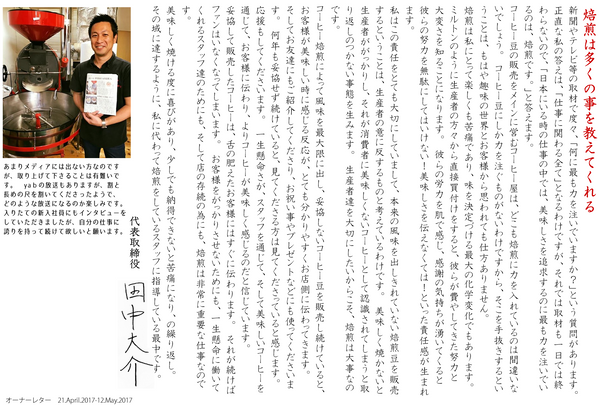 焙煎は多くの事を教えてくれる
新聞やテレビ等の取材で度々、「何に最も力を注いでいますか?」という質問があります。
正直な私の答えは、「仕事に関わる全て」となるわけですが、それでは取材も一日では終
わらないので、「日本にいる時の仕事の中では、美味しさを追求するのに最も力を注いでい
るのは、焙煎です。」と答えます。
コーヒー豆の販売をメインに営むコーヒー屋は、どこも焙煎に力を入れているのは間違いな
いでしょう。コーヒー豆にしか力を注ぐものがないわけですから、そこを手抜きするとい
うことは、もはや趣味の世界とお客様から思われても仕方ありません。
焙煎は私にとって楽しくも苦痛であり、味を決定づける最大の化学変化でもあります。
ミルトンのように生産者の方々から直接買付けをすると、彼らが費やしてきた努力と
大変さを知ることになります。彼らの労力を肌で感じ、感謝の気持ちが湧いてくると
彼らの努力を無駄にしてはいけない!美味しさを伝えなくては!といった責任感が生まれ
ます。
私はこの責任をとても大切にしていまして、本来の風味を出しきれていない焙煎豆を販売
するということは、生産者の意に反するものと考えているわけです。美味しく焼かないと
生産者ががっかりし、それが消費者に美味しくないコーヒーとして認識されてしまうと取
り返しのつかない事態を生みます。生産者達を大切にしたいからこそ、焙煎は大事なの
です。
コーヒー焙煎によって風味を最大限に出し、妥協しないコーヒー豆を販売し続けていると、
お客様が美味しい時に感じる反応が、とても分かりやすくお店側に伝わってきます。
そしてお友達にもご紹介してくださり、お祝い事やプレゼントなどにも使ってくださいま
す。何年も妥協せず続けていると、見てくださる方は見てくださっていると感じます。
応援もしてくださいます。一生懸命さが、スタッフを通じて、そして美味しいコーヒーを
通じて、お客様に伝わり、よりコーヒーが美味しく感じるのだと信じています。
妥協して販売したコーヒーは、舌の肥えたお客様にはすぐに伝わります。それが続けば
ファンはいなくなってしまいます。お客様をがっかりさせないためにも、一生懸命に働いて
くれるスタッフ達のためにも、そして店の存続の為にも、焙煎は非常に重要な仕事なので
す。
美味しく焼ける度に喜びがあり、少しでも納得できないと苦痛になり、の繰り返し。
その域に達するように、私に代わって焙煎をしているスタッフに指導している最中です。
代表取締役
田中大介
あまりメディアには出ない方なのです
が、取り上げて下さることは有難いで
す。 yabの放送もありますが、割と
長めの尺を割いてくださったようで、
どのような放送になるのか楽しみです。
入りたての新入社員にもインタビューを
していただきましたが、自分の仕事に
誇りを持って続けて欲しいと願います。
オーナーレター 21.April.2017-12.May.2017